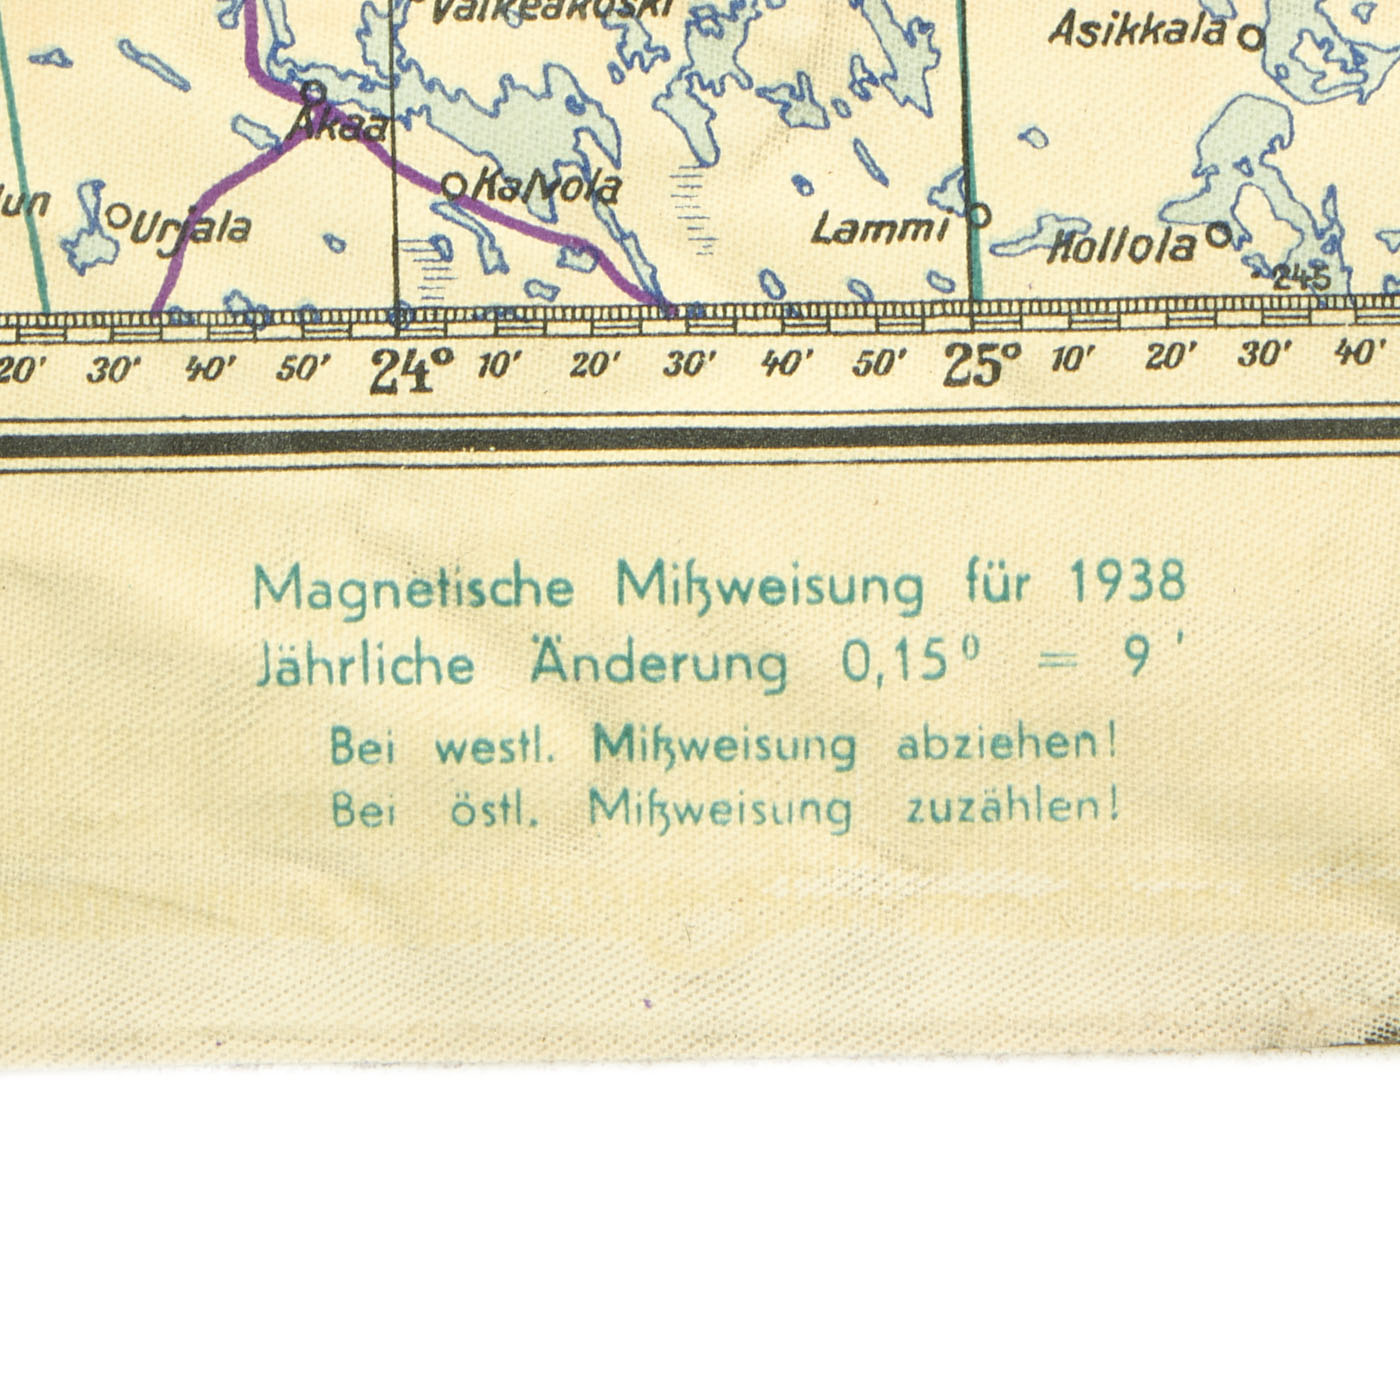 Valkeakoski
Asikkala
Akaa
Kalvola
Urjala
Lammi
Hollola
245
20' 30' 40' 50' 24° 10' 20' 30' 40' 50' 25° 10' 20' 30' 40'
Magnetische Mißweisung für 1938
Jährliche Änderung 0,15° = 9'
Bei westl. Mißweisung abziehen!
Bei östl. Mißweisung zuzählen!